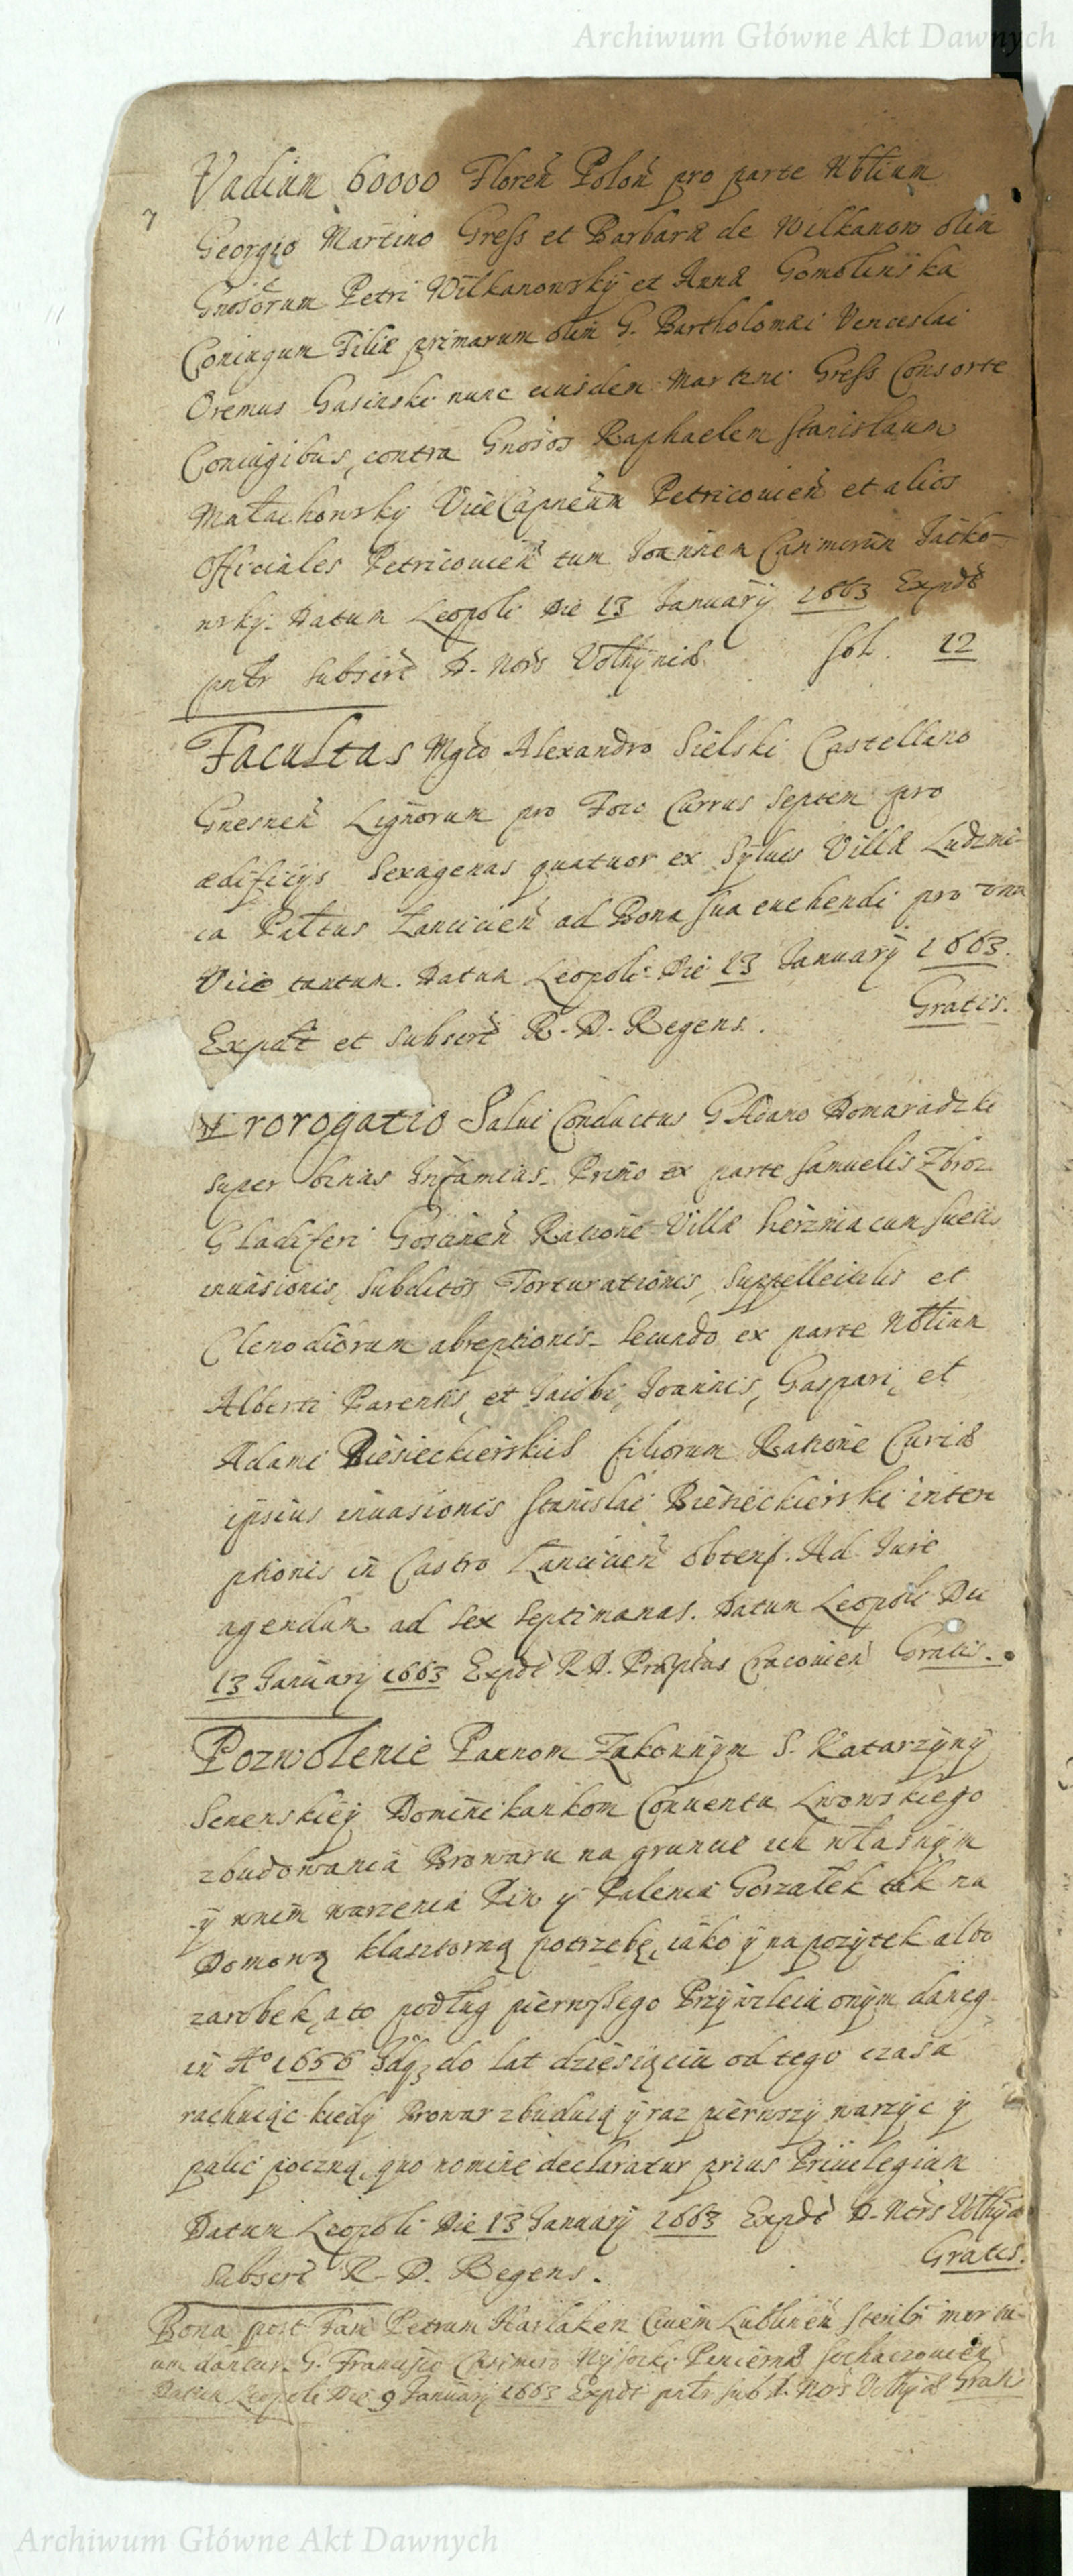 Archiwum Główne Akt Dawnych
Vadium 60000 Floreñ Poloñ pro parte Nbtium
7
Georgio Martino Gress et Barbaræ de Wilkanow olim
Gnosorum Petri Wilkanowsky et Annæ Gomolinska
Coniugum Filiæ primarum olim G. Bartholomæi Venceslai
Oremus Gasinski nunc eiusdem Martini Gress Consorte
Coniugibus, contra Gnosos Raphaelem Stanislaum
Małachowsky ViceCapneum Petricouien et alios
Officiales Petricouien tum Joannem Casimirum Jacko-
wsky. Datum Leopoli Die 13 January 1663 Expdt
pntr subscrt D. Nors Volhyniæ sol. 12
Facultas Mgco Alexandro Sielski Castellano
Gnesnen Lignorum pro Foco Currus Septem pro
ædificijs Sexagenas quatuor ex Syluis Villæ Ludzmi-
ca Pałtus Lancicien ad Bona sua euehendi pro vna
Vice tantum. Datum Leopoli Die 13 January 1663.
Expdt et subscrt R. D. Regens. Gratis.
Prorogatio Salui Conductus G Adamo Domaradzki
super binas Infamias. Primo ex parte Samuelis Zbroz
Gladiferi Gostinen Ratione Villæ
inuasionis, subditor Torturationis, Suppellectilis et
Clenodiorum abreptionis. Secundo ex parte Nobtium
Alberti Parentis, et Jacobi, Joannis, Gaspari, et
Adami Biesieckierskich filiorum Ratione Curiæ
ipsius inuasionis Stanislai Biesieckierski interc
ptionis in Castro Lancicien obtent. Ad Jure
agendum ad sex Septimanas. Datum Leopoli Die
13 January 1663 Expdt R. D. Præptus Cracouien Gratis.
Pozwolenie Pannom Zakonnym S. Katarzyny
Senenskiey Dominikankom Conuentu Lwowskiego
zbudowania Browaru na gruncie ich własnym
y wnim warzenia Piw y Palenia Gorzałek tak na
Domową klasztorną potrzebę, iako y na pozytek albo
zarobek, a to podług pierwszego Przywileiu onym daneg
in Aº 1656 do lat dziesiąciu od tego czasu
rachuiąc kiedy Browar zbuduią y raz pierwszy warzyc y
palic poczną, quo nomine declaratur prius Priuilegium
Datum Leopoli Die 13 January 1663 Expdt D. Nors Volhyæ
Subscrt R. D. Regens. Gratis.
Bona post Petrum Haslaken Ciuem Lublinen Sterili mortu-
um dantur G. Francisco Casimiro Wysocki Pincernæ Sochaczouien
Datum Leopoli Die 9 January 1663 Expdt pntr subt. Nors Volhyæ Gratis
Archiwum Główne Akt Dawnych